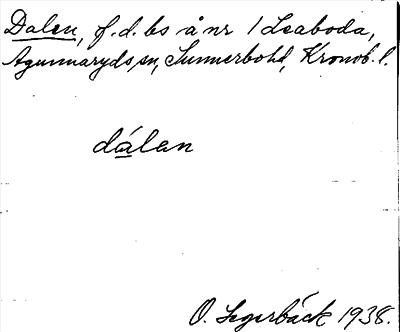 Dalen, f.d. bs å nr 1 Leaboda,
Agunnaryds sn, Sunnerbo hd, Kronob. l.
dálan
O. Segerbäck 1938.